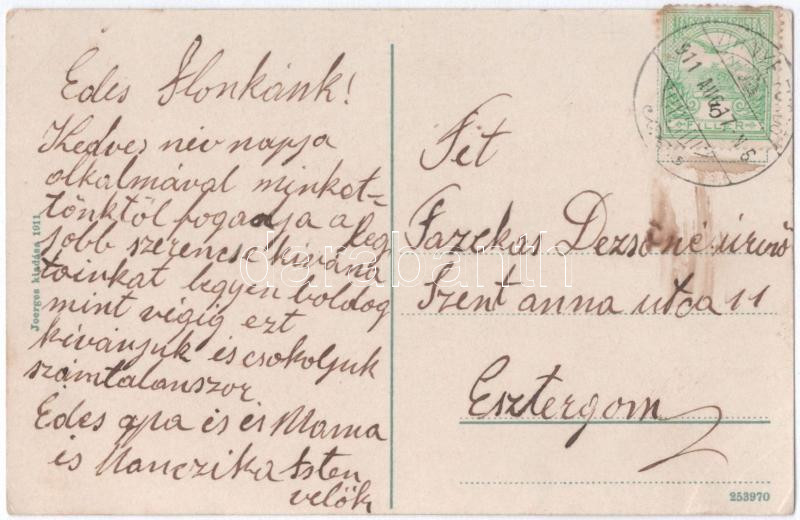 Edes Ilonkánk!
Kedves név napja
alkalmával minket-
tönktöl fogadja a leg
jobb szerencse kívána
tainkat legyen boldog
mint végig ezt
kívánjuk és csokoljuk
számtalanszor
Edes apa és és Mama
és Manczika Isten
velök
Joerges kiadása 1911
Fazekas Dezsőné úrinő
Szent anna utca 11
Esztergom
MAGYAR KIR. POSTA
911 AUG 17
FILLÉR
253970
darabanth